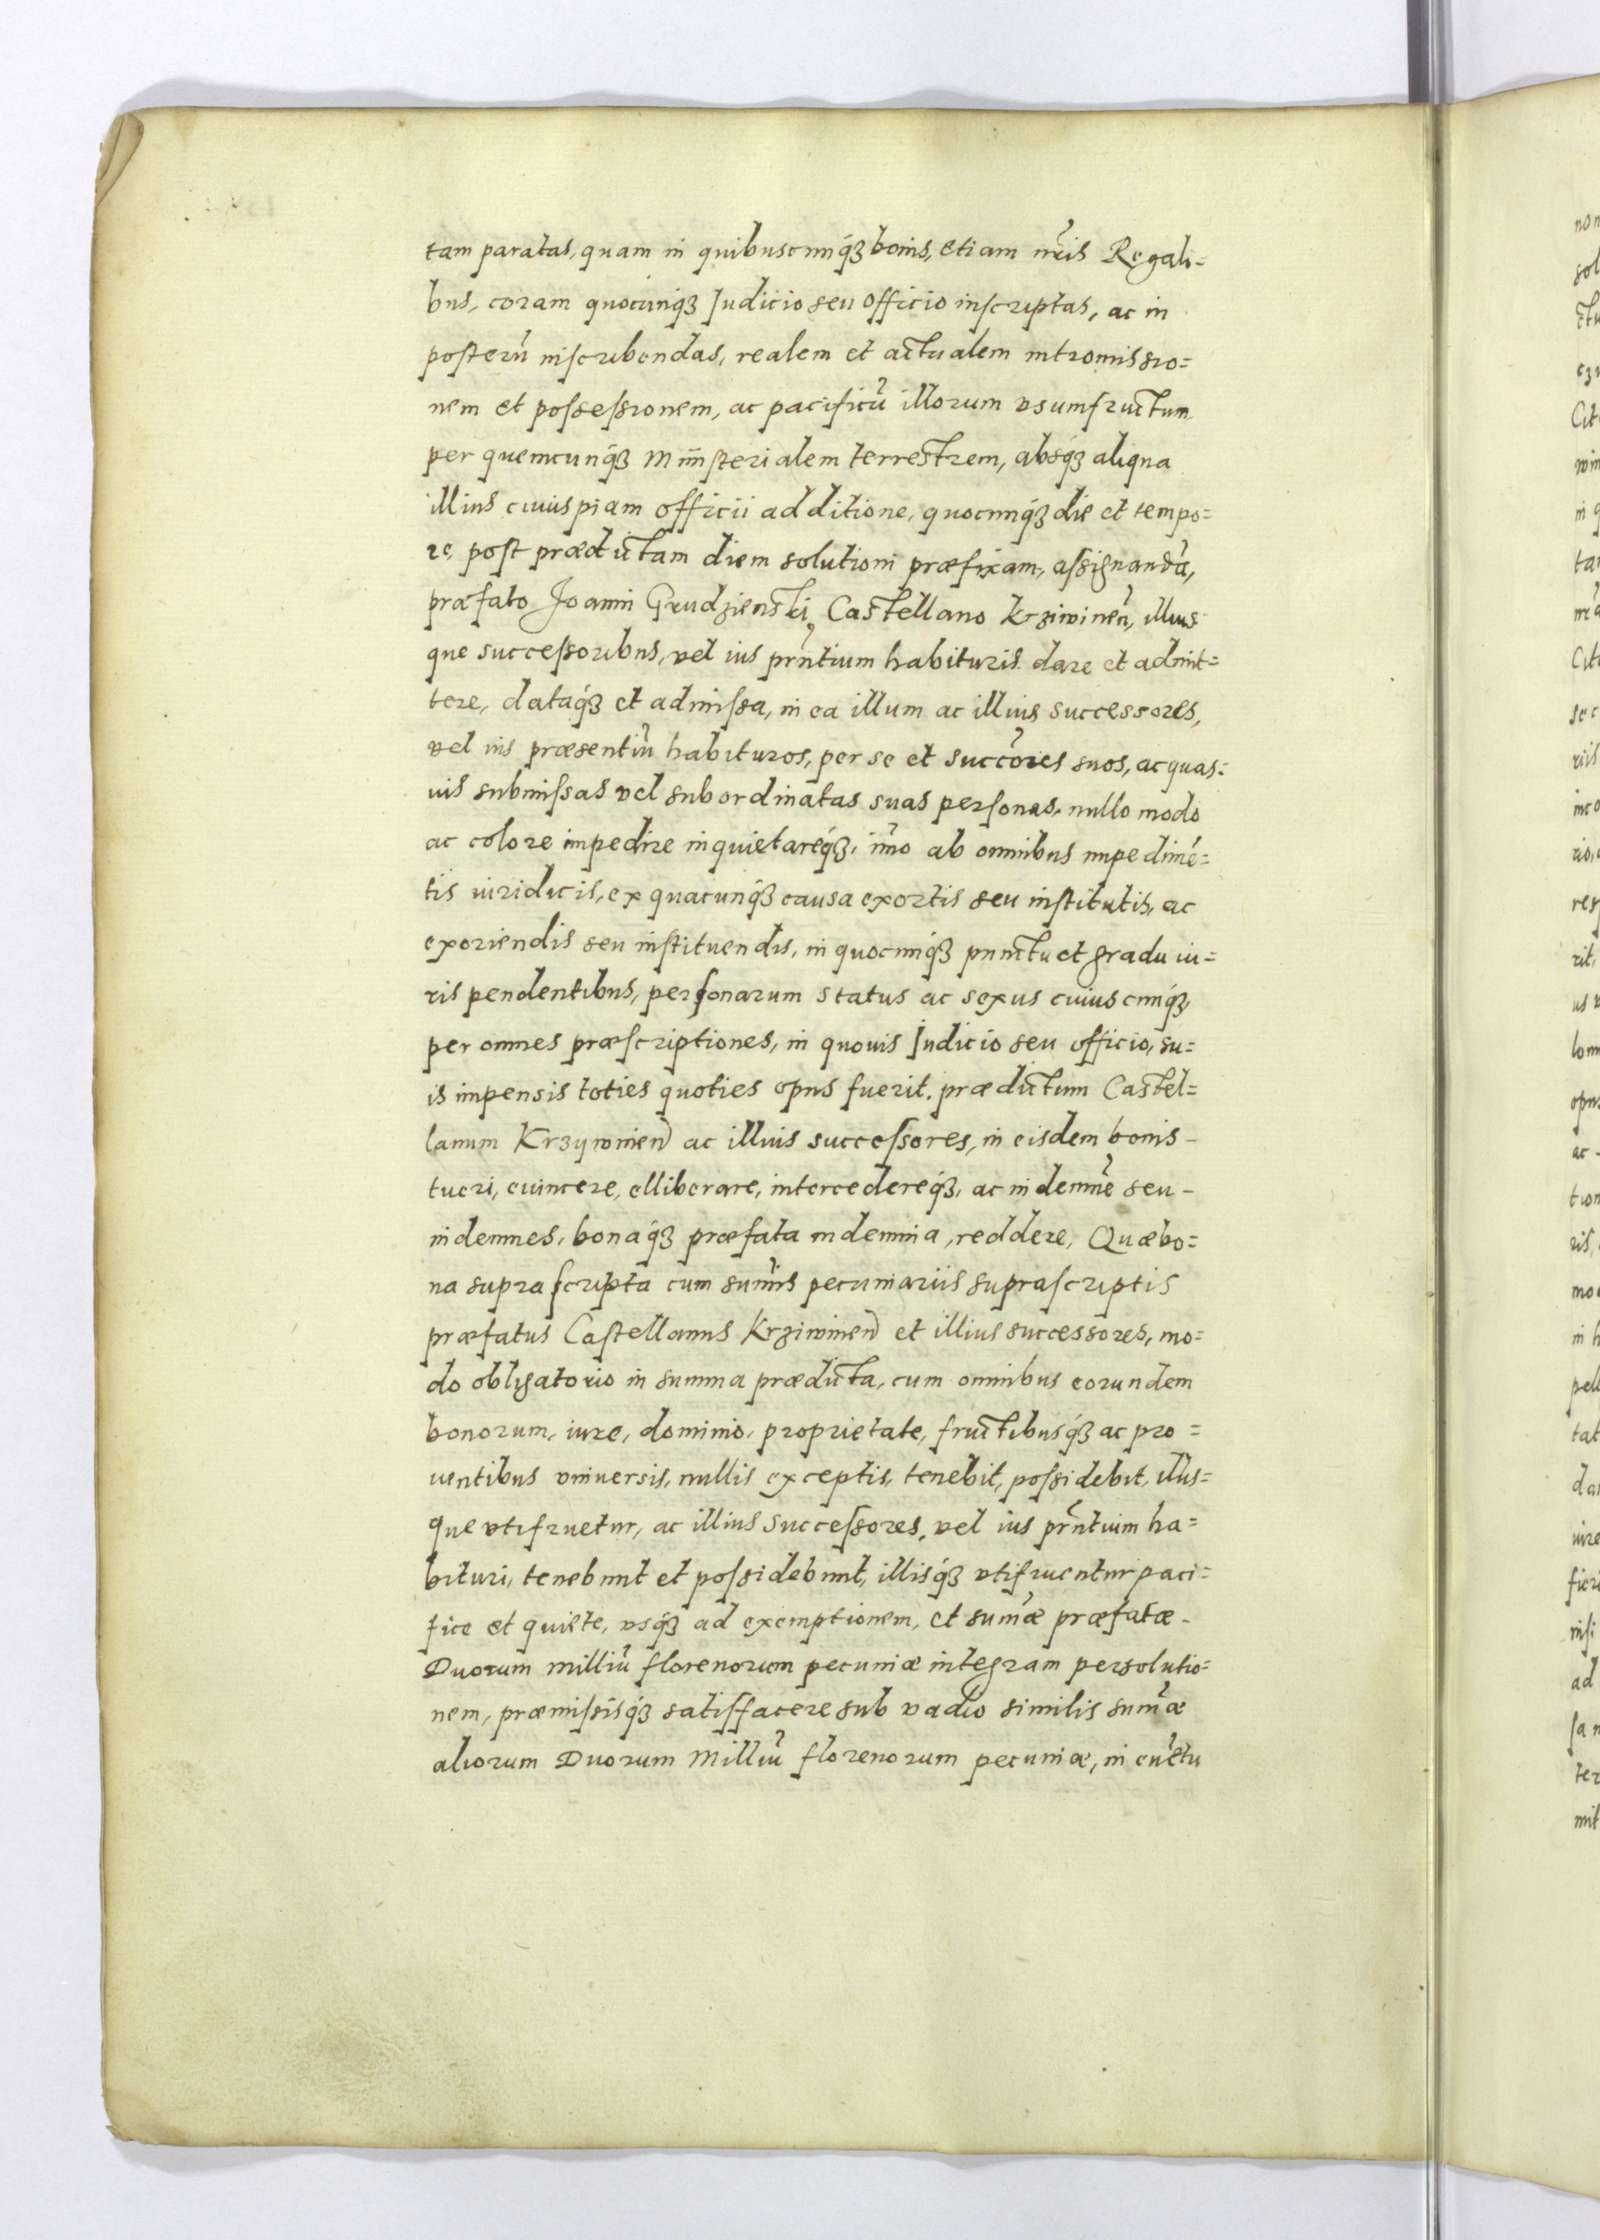 tam paratas, quam in quibuscunq́ꝫ bonis, etiam nr̃is Regali=
bus, coram quocunq́ꝫ Judicio seu officio inscriptas, ac in
posterũ inscribendas, realem et actualem intromissio=
nem et possessionem, ac pacificũ illorum vsumfructum
per quemcunq́ꝫ Ministerialem terrestrem, absq́ꝫ aliqua
illius cuiuspiam officii additione, quocunq́ꝫ die et tempo=
re, post prædictam diem solutioni præfixam, assignandã,
præfato Joanni Grudzienski, Castellano Krziwineñ, illius
que successoribus, vel ius prñtium habituris dare et admit=
tere, dataq́ꝫ et admissa, in ea illum ac illius successores,
vel ius præsentiũ habituros, per se et succõres suos, ac quas=
uis submissas vel subordinatas suas personas, nullo modo
ac colore impedire inquietareq́ꝫ, im̃o ab omnibus impedimẽ=
tis iuridicis, ex quacunq́ꝫ causa exortis seu institutis, ac
exoriendis seu instituendis, in quocunq́ꝫ punctu et gradu iu=
ris pendentibus, personarum status ac sexus cuiuscunq́ꝫ,
per omnes præscriptiones, in quouis Judicio seu officio, su=
is impensis toties quoties opus fuerit, prædictum Castel=
lanum Krzywineñ ac illius successores, in eisdem bonis -
tueri, euincere, elliberare, intercedereq́ꝫ, ac indemnẽ seu -
indemnes, bonaq́ꝫ præfata indemnia, reddere, Quæ bo=
na suprascripta cum sum̃is pecuniariis suprascriptis
præfatus Castellanus Krziwineñ et illius successores, mo=
do obligatorio in summa prædicta, cum omnibus eorundem
bonorum, iure, dominio, proprietate, fructibusq́ꝫ ac pro=
uentibus vniuersis, nullis exceptis, tenebit, possidebit, illis=
que vtifruetur, ac illius successores, vel ius prñtium ha=
bituri, tenebunt et possidebunt, illisq́ꝫ vtifruentur paci=
fice et quiete, vsq́ꝫ ad exemptionem, et sum̃æ præfatæ -
Duorum milliũ florenorum pecuniæ integram persolutio=
nem, præmissisq́ꝫ satisfacere sub vadio similis sum̃æ
aliorum Duorum Milliũ florenorum pecuniæ, in euẽtu